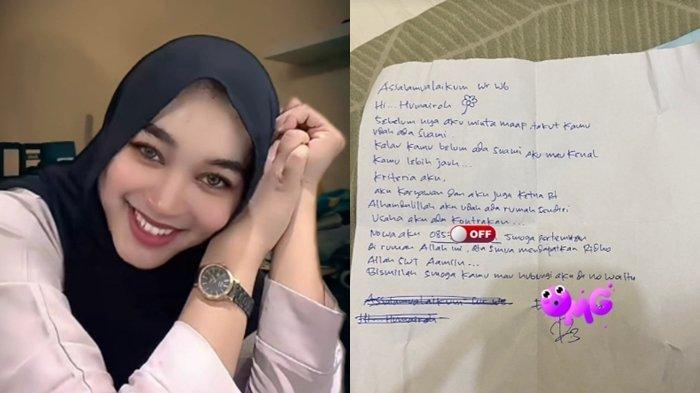 Assalamualaikum wr wb
Hi... Humairoh
Sebelum nya aku minta maap, takut kamu
udah ada suami.
Kalau kamu belum ada suami aku mau kenal
kamu lebih jauh...
Kriteria aku,
aku karyawan dan aku juga ketua Rt
Alhamdulillah aku udah ada rumah sendiri
Usaha aku ada kontrakan...
No wa aku 085 OFF Smoga pertemuan
di rumah Allah ini, kita smua mendapatkan Ridho
Allah SWT Aamiin...
Bismillah smoga kamu mau hubungi aku di no wa itu
Assalamualaikum wr wb
Hi... Humairoh
OMG